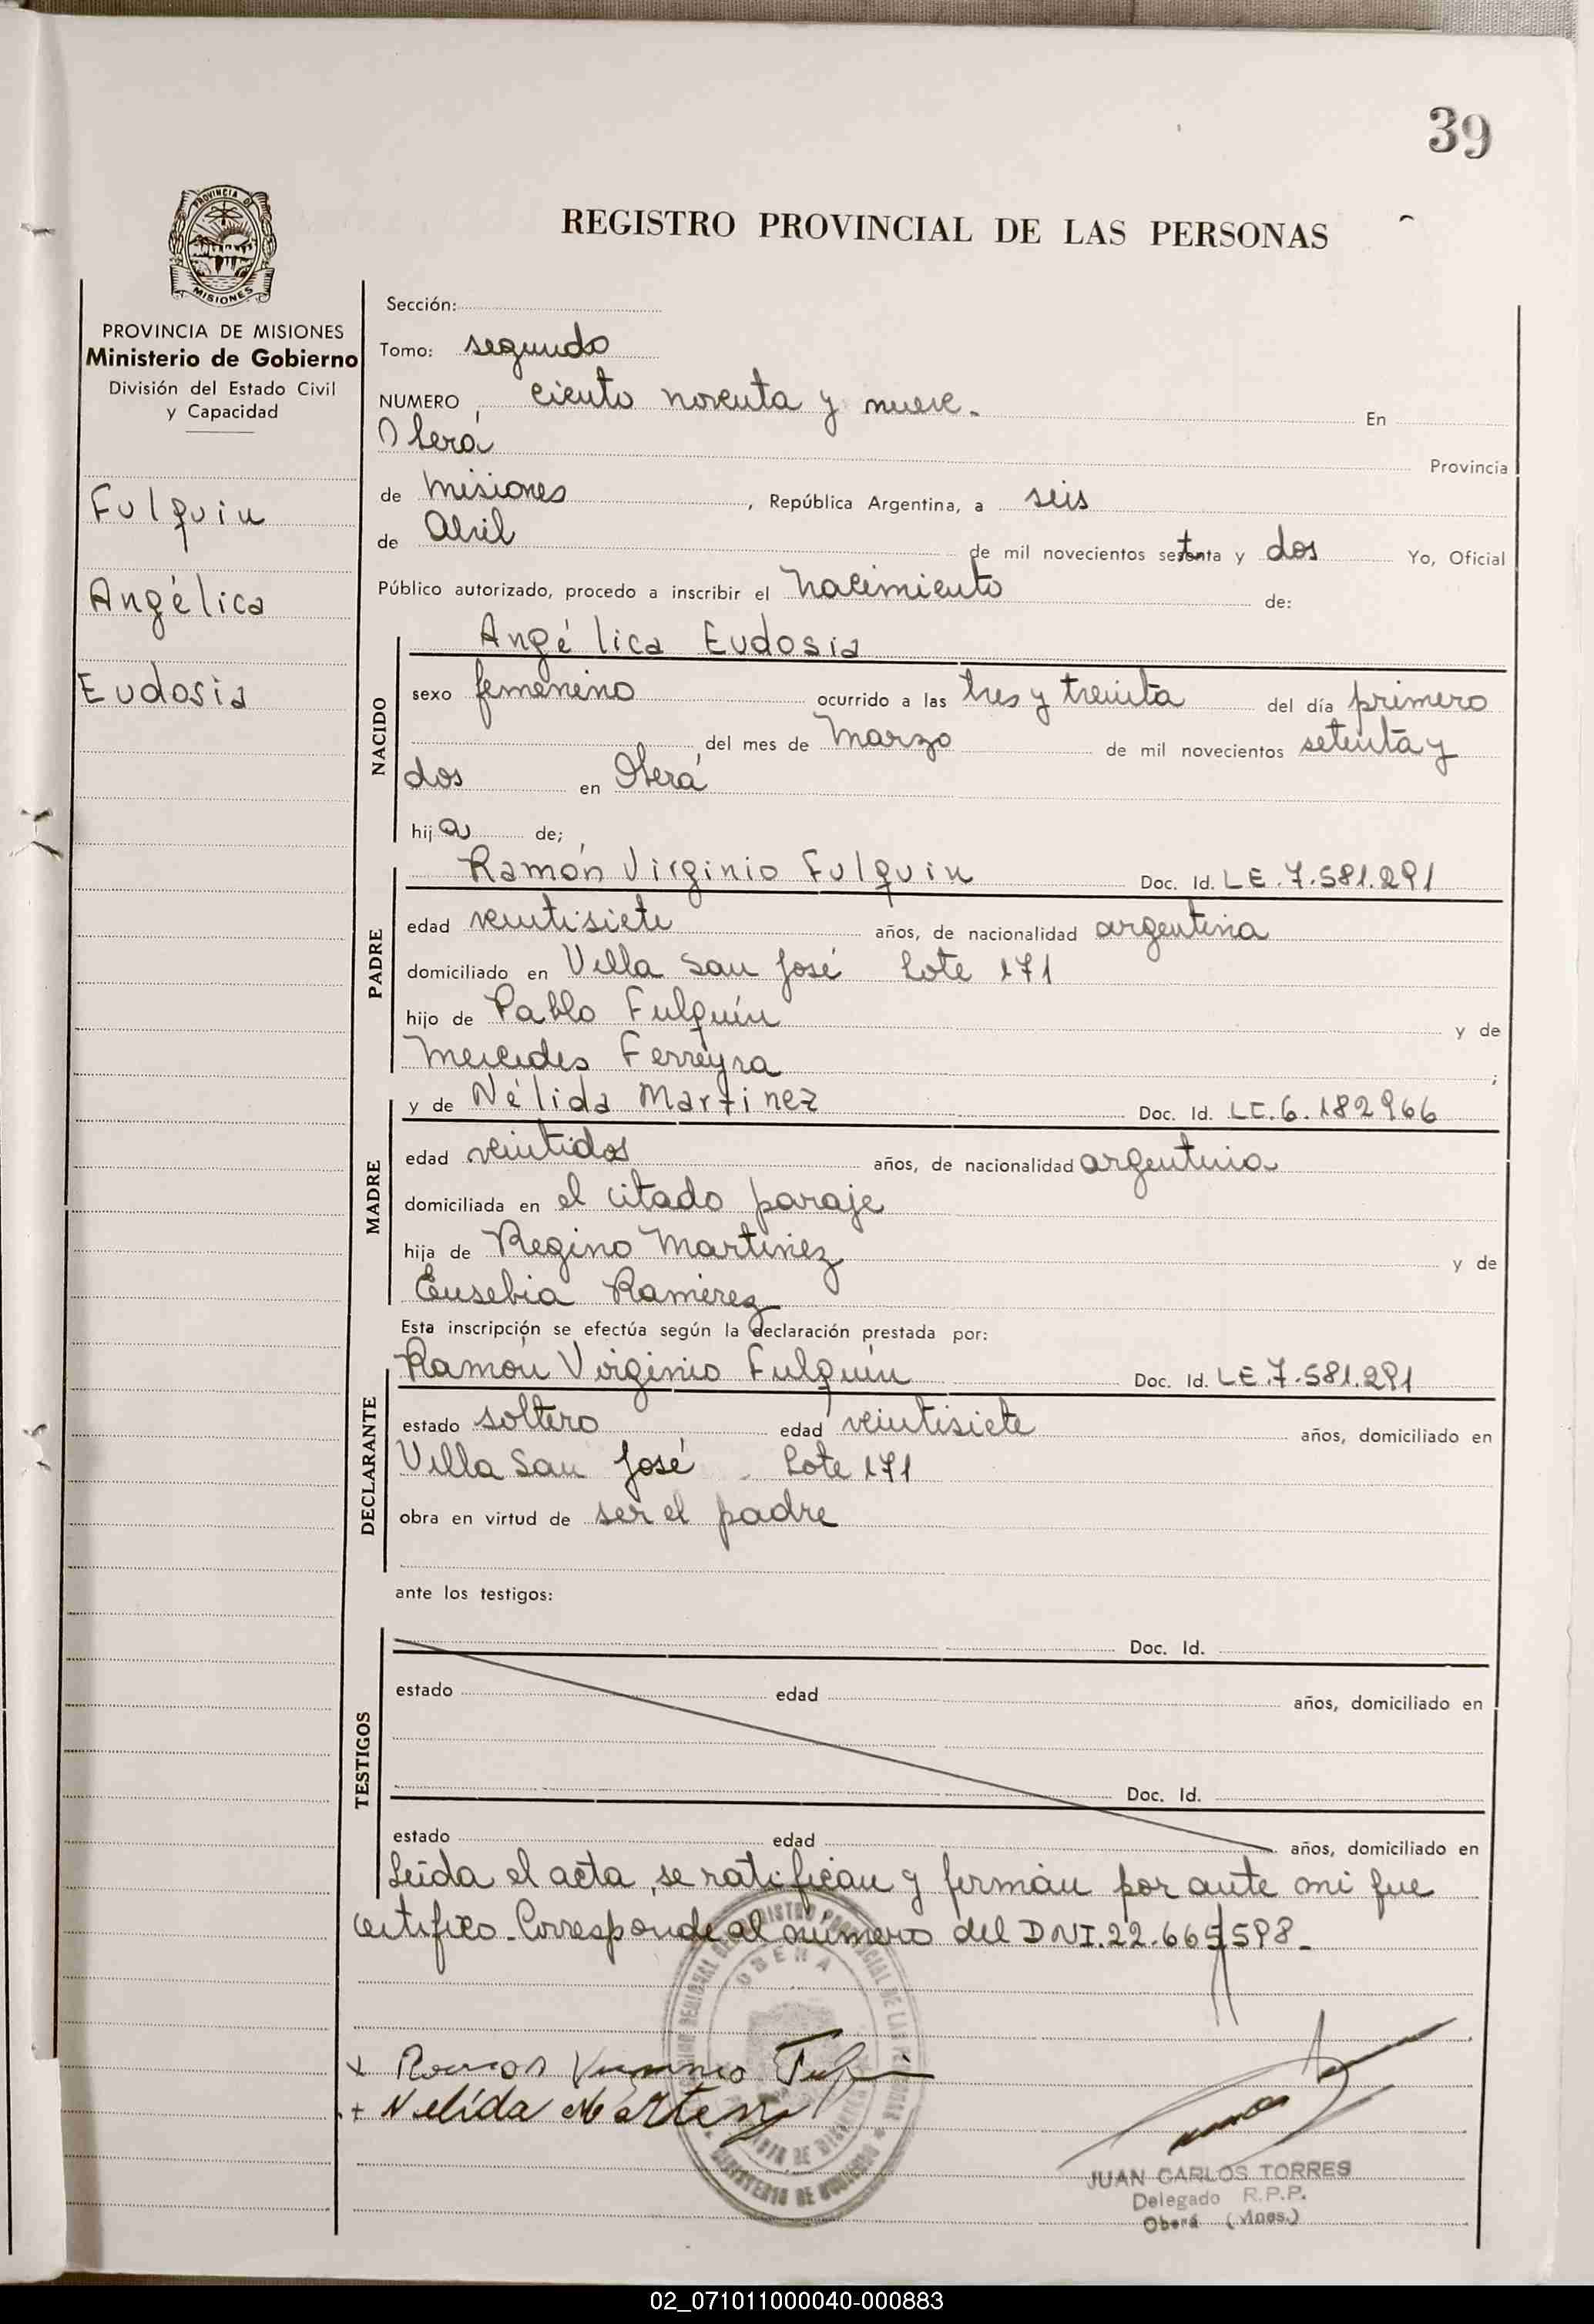 39
PROVINCIA DE
MISIONES
REGISTRO PROVINCIAL DE LAS PERSONAS
PROVINCIA DE MISIONES
Ministerio de Gobierno
División del Estado Civil
y Capacidad
Fulquin
Angélica
Eudosia
Sección:
Tomo: segundo
NUMERO ciento noventa y nueve. En
Oberá Provincia
de Misiones, República Argentina, a seis
de Abril de mil novecientos setenta y dos Yo, Oficial
Público autorizado, procedo a inscribir el nacimiento de:
NACIDO
Angélica Eudosia
sexo femenino ocurrido a las tres y treinta del día primero
del mes de Marzo de mil novecientos setenta y
dos en Oberá
hija de;
PADRE
Ramón Virginio Fulquin Doc. Id. LE.7.581.291
edad veintisiete años, de nacionalidad argentina
domiciliado en Villa San José Lote 171
hijo de Pablo Fulquín y de
Mercedes Ferreyra ;
MADRE
y de Nélida Martinez Doc. Id. LC.6.182966
edad veintidos años, de nacionalidad argentina
domiciliada en el citado paraje
hija de Regino Martinez y de
Eusebia Ramirez
Esta inscripción se efectúa según la declaración prestada por:
DECLARANTE
Ramón Virginio Fulquin Doc. Id. LE.7.581.291
estado soltero edad veintisiete años, domiciliado en
Villa San José Lote 171
obra en virtud de ser el padre
ante los testigos:
TESTIGOS
Doc. Id.
estado edad años, domiciliado en
Doc. Id.
estado edad años, domiciliado en
Leida el acta, se ratifican y firman por ante mi que
certifico. Corresponde al número del DNI.22.665598.
+ Ramon Fulquin
+ Nelida Martenz
OBERA
MINISTERIO DE GOBIERNO
JUAN CARLOS TORRES
Delegado R.P.P.
Oberá (Mnes.)
02_071011000040-000883